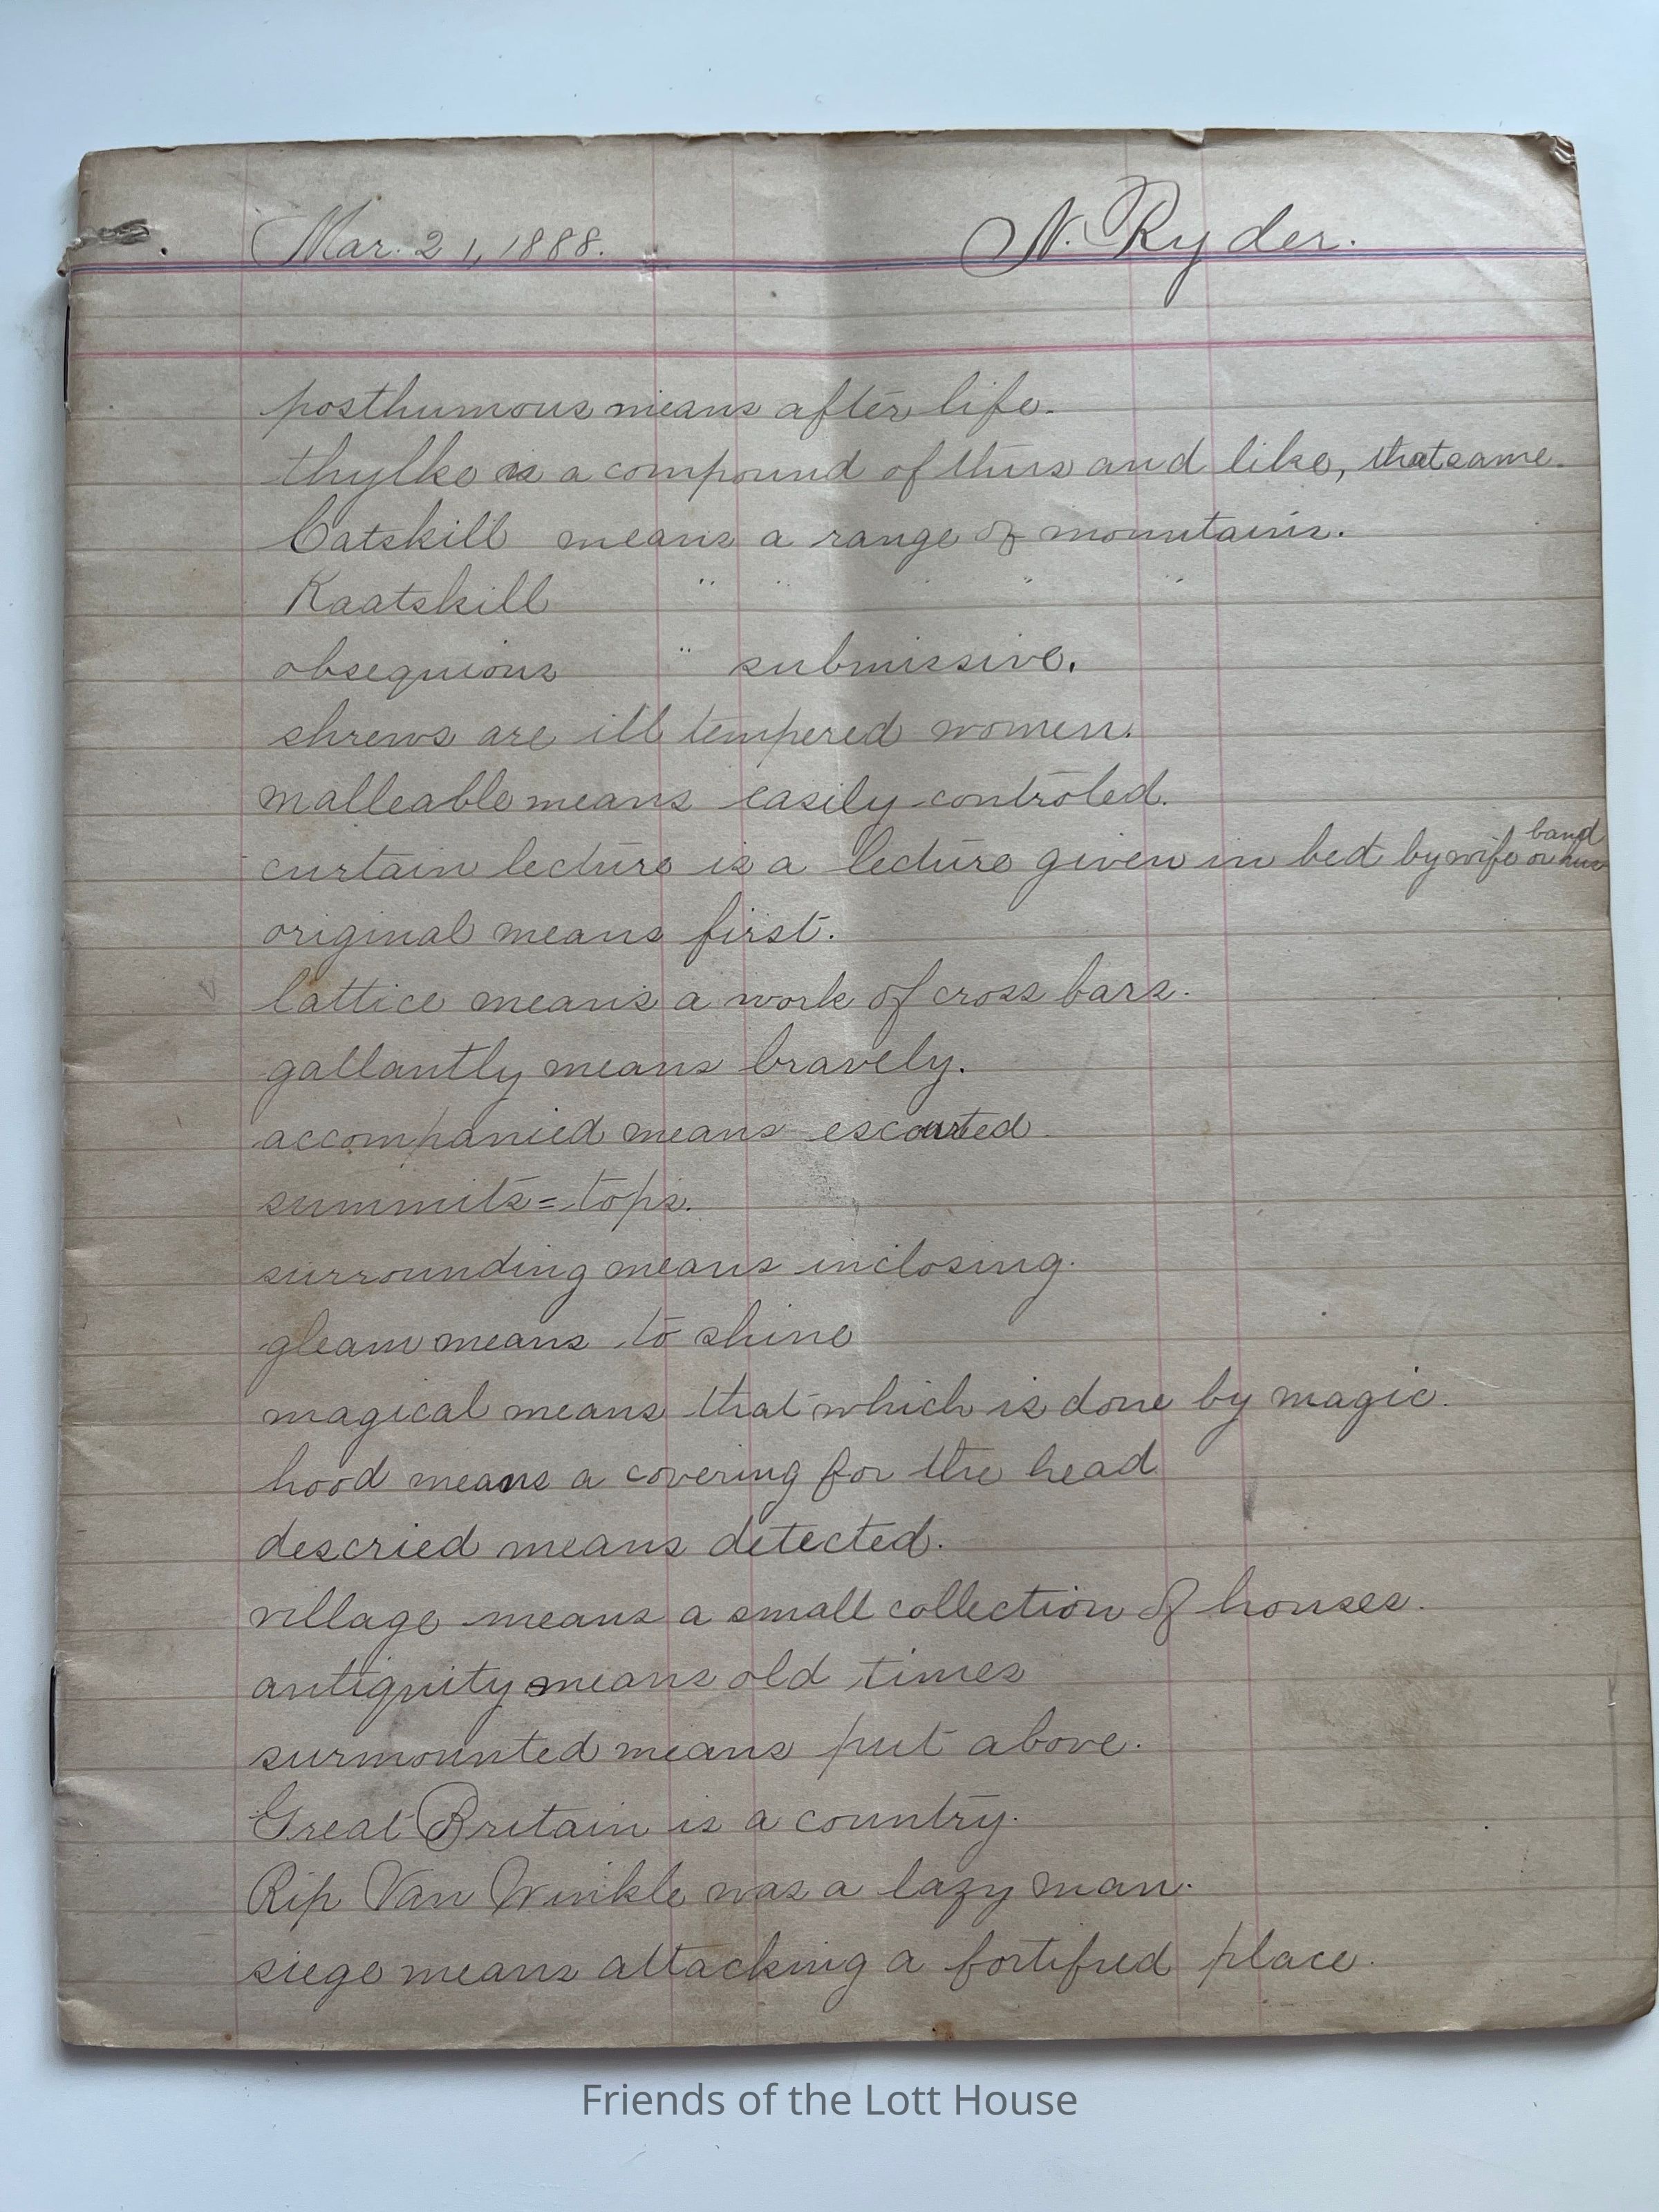 Mar. 21, 1888. N. Ryder.
posthumous means after life.
thylke is a compound of thus and like, that same.
Catskill means a range of mountains.
Kaatskill " " " " "
obsequious " submissive.
shrews are ill tempered women.
malleable means easily controled.
curtain lecture is a lecture given in bed by wife or husband
original means first.
lattice means a work of cross bars.
gallantly means bravely.
accompanied means escorted
summits = tops.
surrounding means inclosing.
gleam means to shine
magical means that which is done by magic.
hood means a covering for the head
descried means detected.
village means a small collection of houses.
antiquity means old times
surmounted means put above.
Great Britain is a country.
Rip Van Winkle was a lazy man.
siege means attacking a fortified place.
Friends of the Lott House